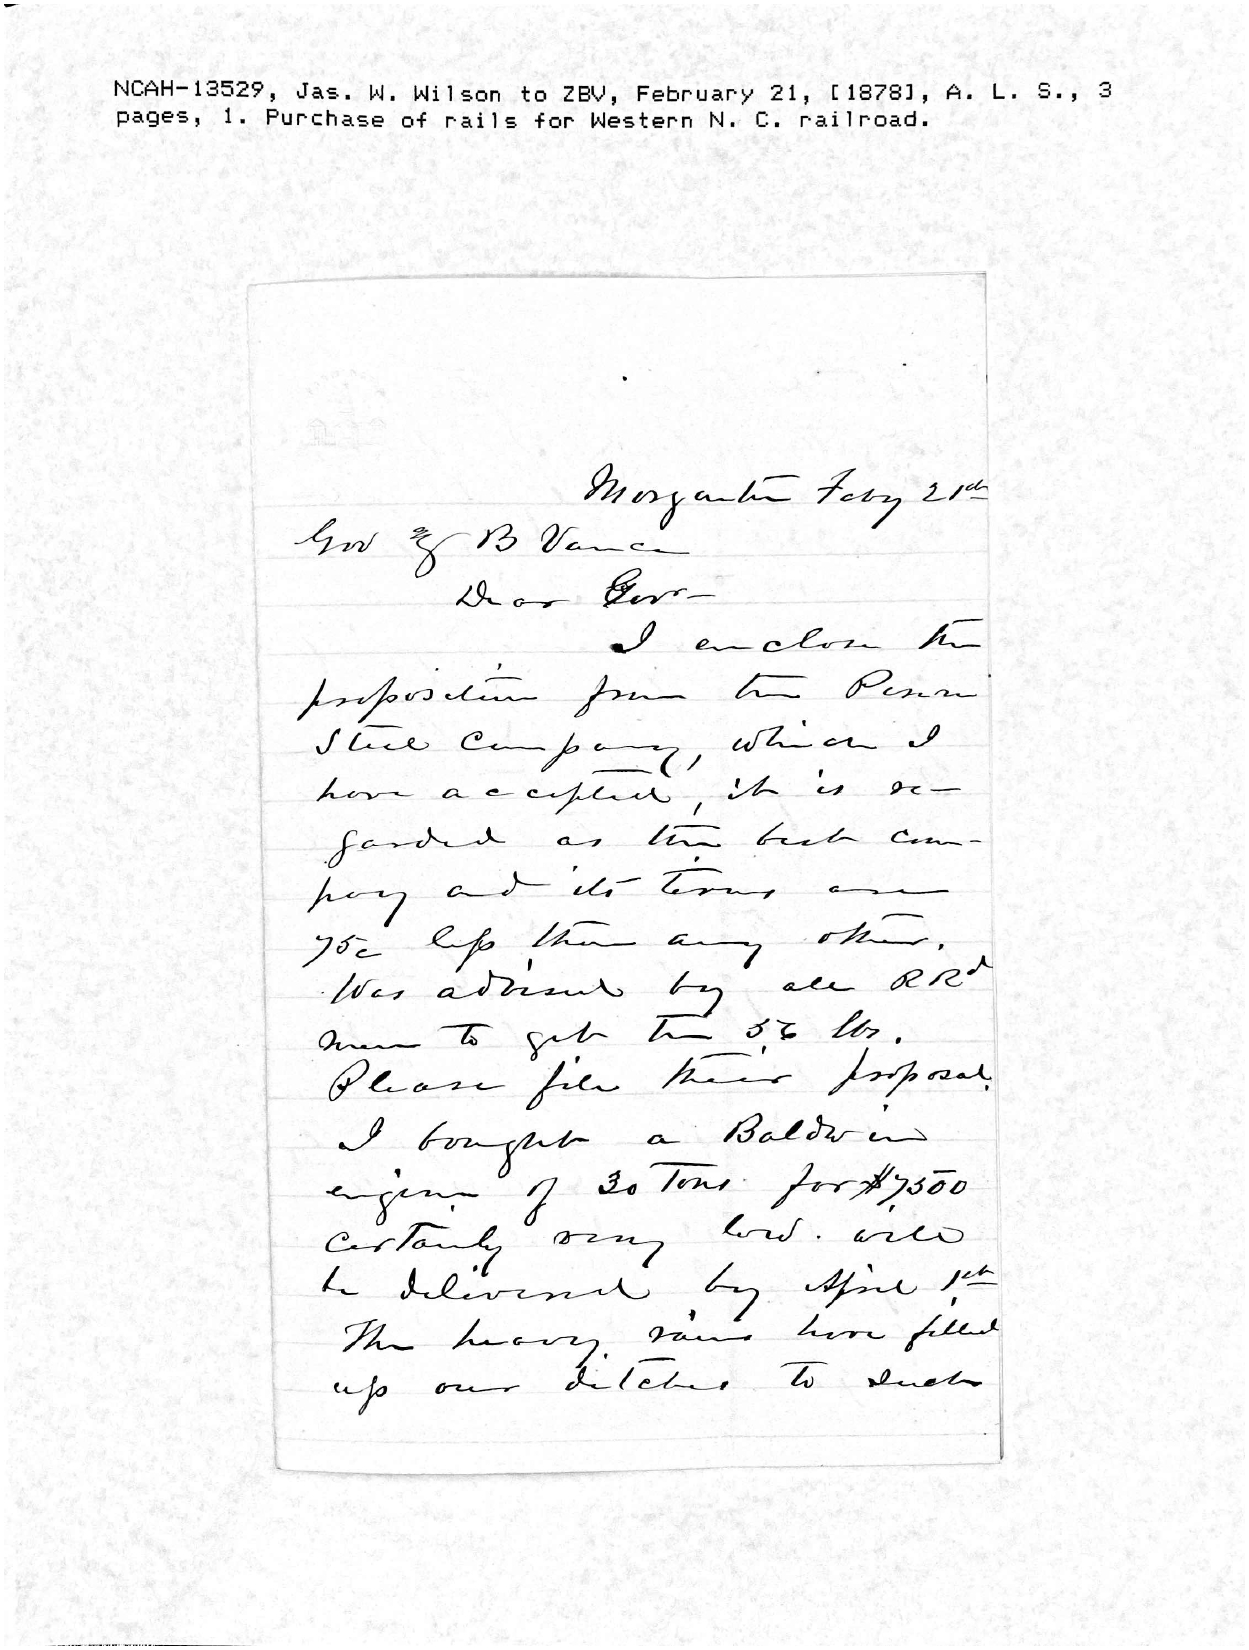 NCAH-13529, Jas. W. Wilson to ZBV, February 21, [1878], A. L. S., 3
pages, 1. Purchase of rails for Western N. C. railroad.
Morganton Feby 21st
Gov Z B Vance
Dear Govr—
I enclose the
proposition from the Penn
Steel Company, which I
have accepted, it is re-
garded as the best com-
pany and its terms are
75c less than any other.
Was advised by all RRd
men to get the 56 lbs.
Please file their proposal.
I bought a Baldwin
engine of 30 Tons for $7500
certainly very low. will
be delivered by April 1st
The heavy rains have filled
up our ditches to such